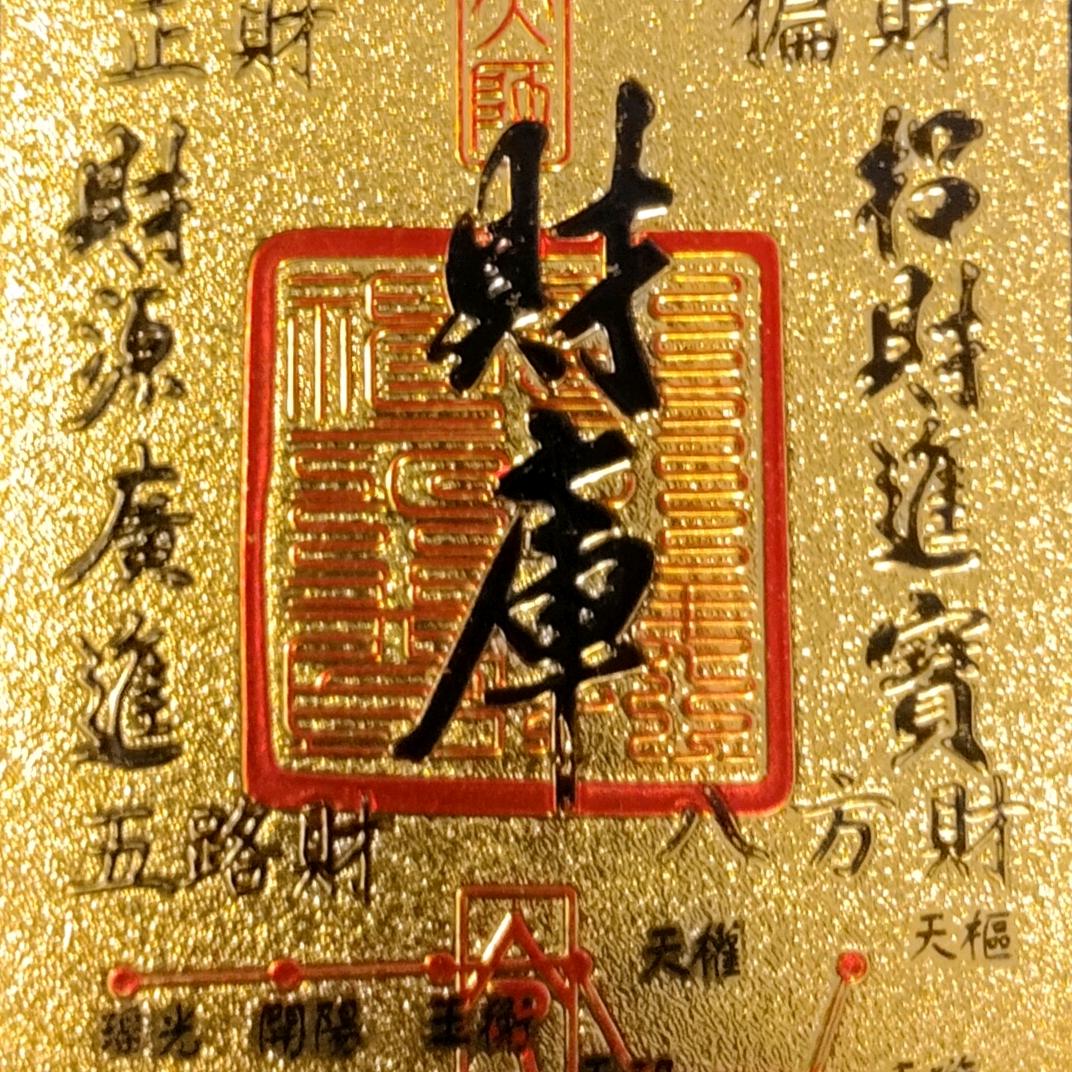 正財
偏財
招財進寶
財庫
財源廣進
五路財
八方財
天樞
天權
瑤光 開陽 玉衡